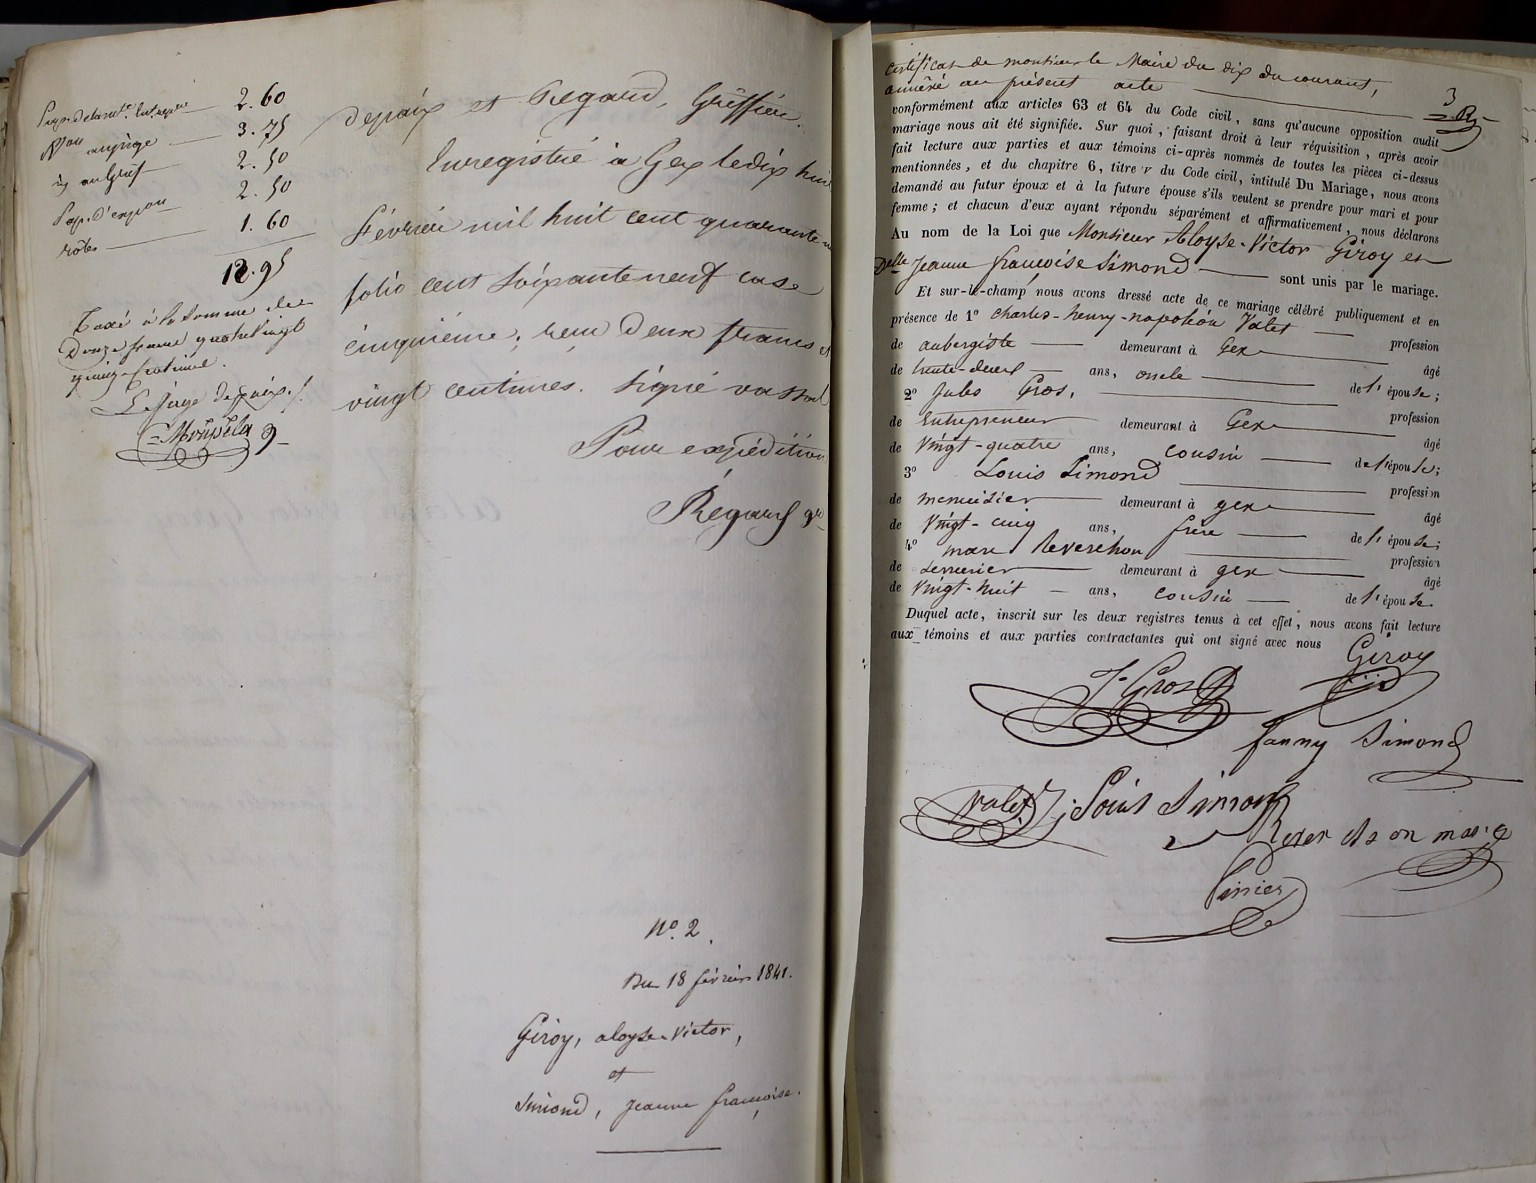 2.60
3.75
2.50
2.50
1.60
rôle
12.95
Taxé à la somme de
Douze francs quatrevingt
quinze centimes.
Le juge de paix
depaix et Regard, Greffier.
Enregistré à Gex le dix huit
février mil huit cent quarante un
folio cent soixante neuf case
cinquième; reçu deux francs et
vingt centimes. Signé
Pour expédition
Regard
N° 2.
Du 18 février 1841.
Giroy, aloyse-Victor,
et
Simond, Jeanne françoise.
certificat de monsieur le Maire du dix du courant,
annéxé au présent acte
3
conformément aux articles 63 et 64 du Code civil, sans qu'aucune opposition audit
mariage nous ait été signifiée. Sur quoi, faisant droit à leur réquisition, après avoir
fait lecture aux parties et aux témoins ci-après nommés de toutes les pièces ci-dessus
mentionnées, et du chapitre 6, titre V du Code civil, intitulé Du Mariage, nous avons
demandé au futur époux et à la future épouse s'ils veulent se prendre pour mari et pour
femme; et chacun d'eux ayant répondu séparément et affirmativement, nous déclarons
Au nom de la Loi que Monsieur Aloyse-Victor Giroy et
Delle Jeanne françoise Simond sont unis par le mariage.
Et sur-le-champ nous avons dressé acte de ce mariage célébré publiquement et en
présence de 1° charles-henry-napoléon Valet profession
de aubergiste demeurant à Gex âgé
de trente-deux ans, oncle de l'épouse;
2° Jules Gros, profession
de Entrepreneur demeurant à Gex âgé
de Vingt-quatre ans, cousin de l'épouse;
3° Louis Simond profession
de menuisier demeurant à gex âgé
de Vingt-cinq ans, frère de l'épouse;
4° marc Reverchon profession
de serrurier demeurant à gex âgé
de Vingt-huit ans, cousin de l'épouse.
Duquel acte, inscrit sur les deux registres tenus à cet effet, nous avons fait lecture
aux témoins et aux parties contractantes qui ont signé avec nous
Giroy
J. Gros
fanny Simond
Valet
Louis Simond